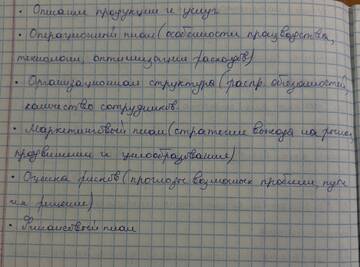 • Описание продукции и услуг
• Операционный план (особенности производства,
технологии, оптимизация расходов)
• Организационная структура (распр. обязанностей,
количество сотрудников.
• Маркетинговый план (стратегие выхода на рынок,
продвижения и ценообразования)
• Оценка рисков (прогнозы возможных проблем, пути
их решение)
• Финансовый план